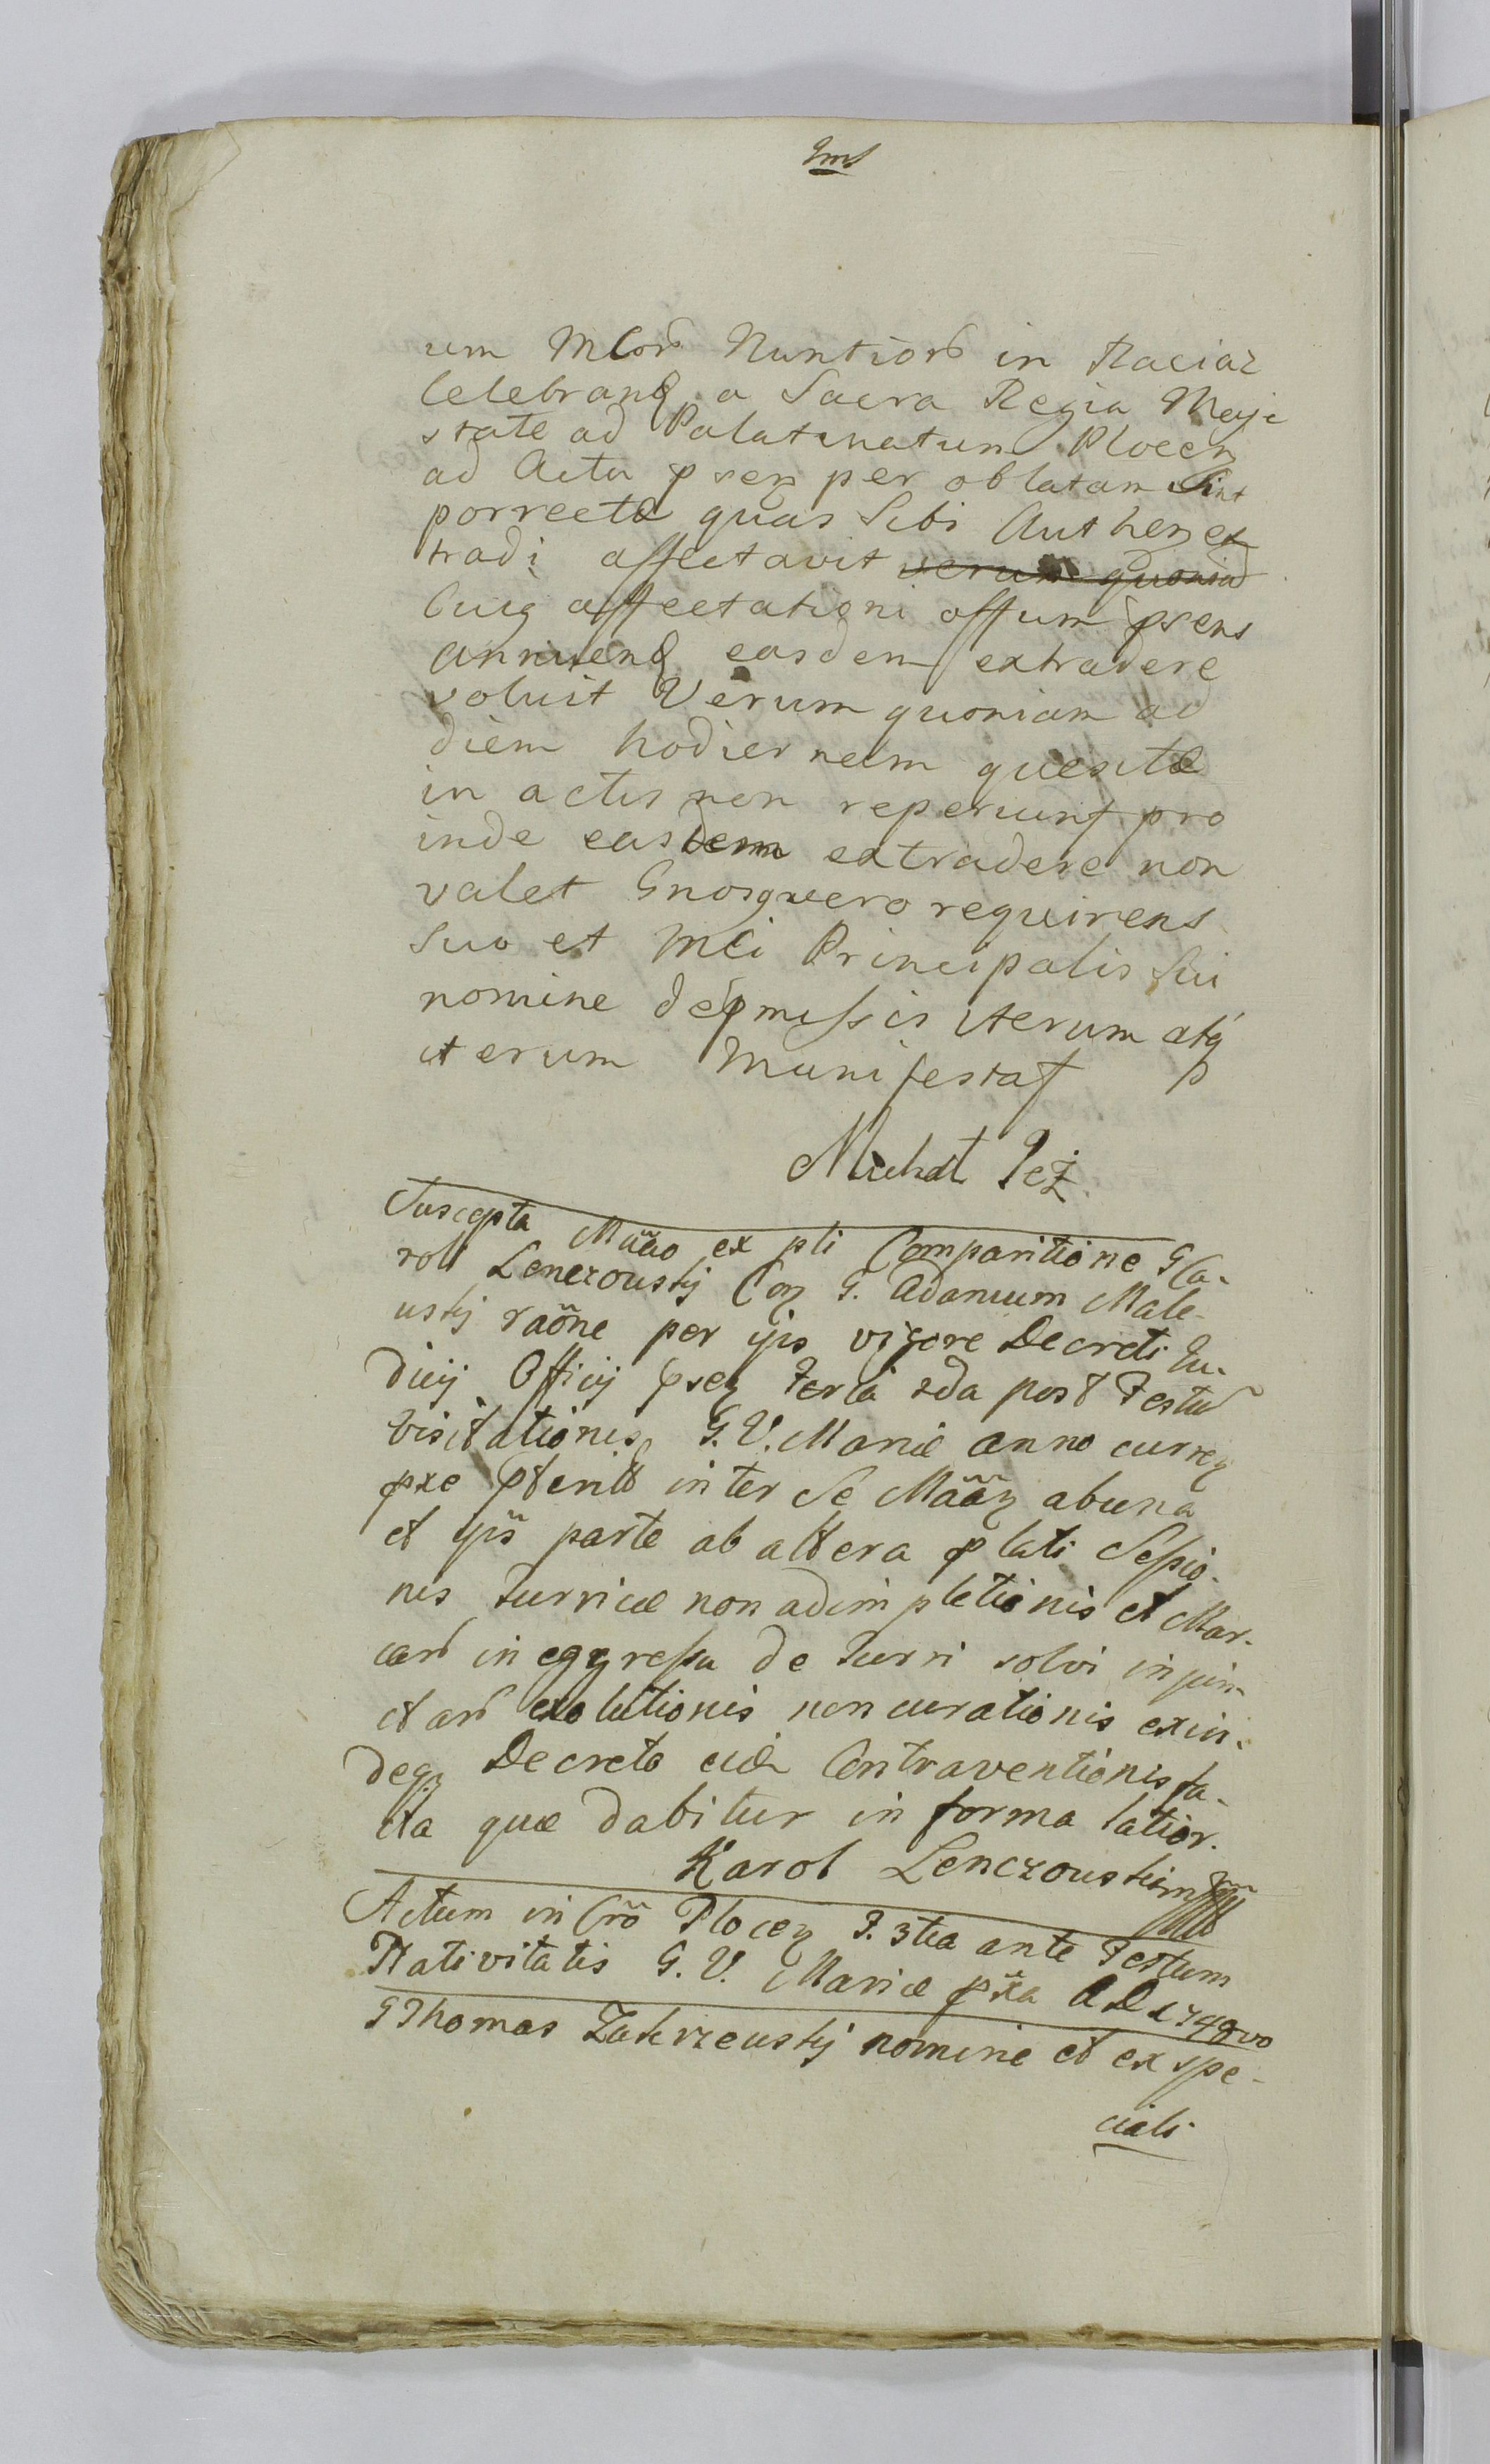 um MCorᷤ Nuntiorᷤ in Raciaz
Celebrand a Sacra Regia Maje
state ad Palatinatum Plocen
ad Acta psen per oblatam sint
porrectæ quas Sibi Authen ex
tradi affectavit verum quoniad
Cuiq affectationi offum psens
annuend easdem extradere
voluit Verum quoniam ad
diem hodiernam quesitæ
in actis non reperiunt pro
inde easdem extradere non
valet Gnosq vero requirens
Suo et MCi Principalis Sui
nomine de pmissis iterum atq
iterum Manifestat p
Michał Jeż
Suscepta Mãão ex pli Comparitione G Ca-
roli Lenczouskij Con G. Adamum Male-
uskij raõne per ips vigore Decreti Ju-
dicij Officij psen Feria 2da post Festũ
Visitationis G. V. Mariæ anno curren
pxe pterit inter Se Mããn ab una
et ips parte ab altera plati Sessio-
nis Turricæ non adimpletionis et Mar-
carᷤ in eggressu de Turri solvi injun-
ctarᷤ exolutionis non curationis exin-
deq Decreto eid Contraventionis fa-
cta quæ dabitur in forma latior.
Karol Lenczouski
Actum in Crõ Plocen F. 3tia ante Festum
Nativitatis G. V. Mariæ pxa A D 1748vo
G Thomas Zakrzeuskij nomine et ex spe-
ciali